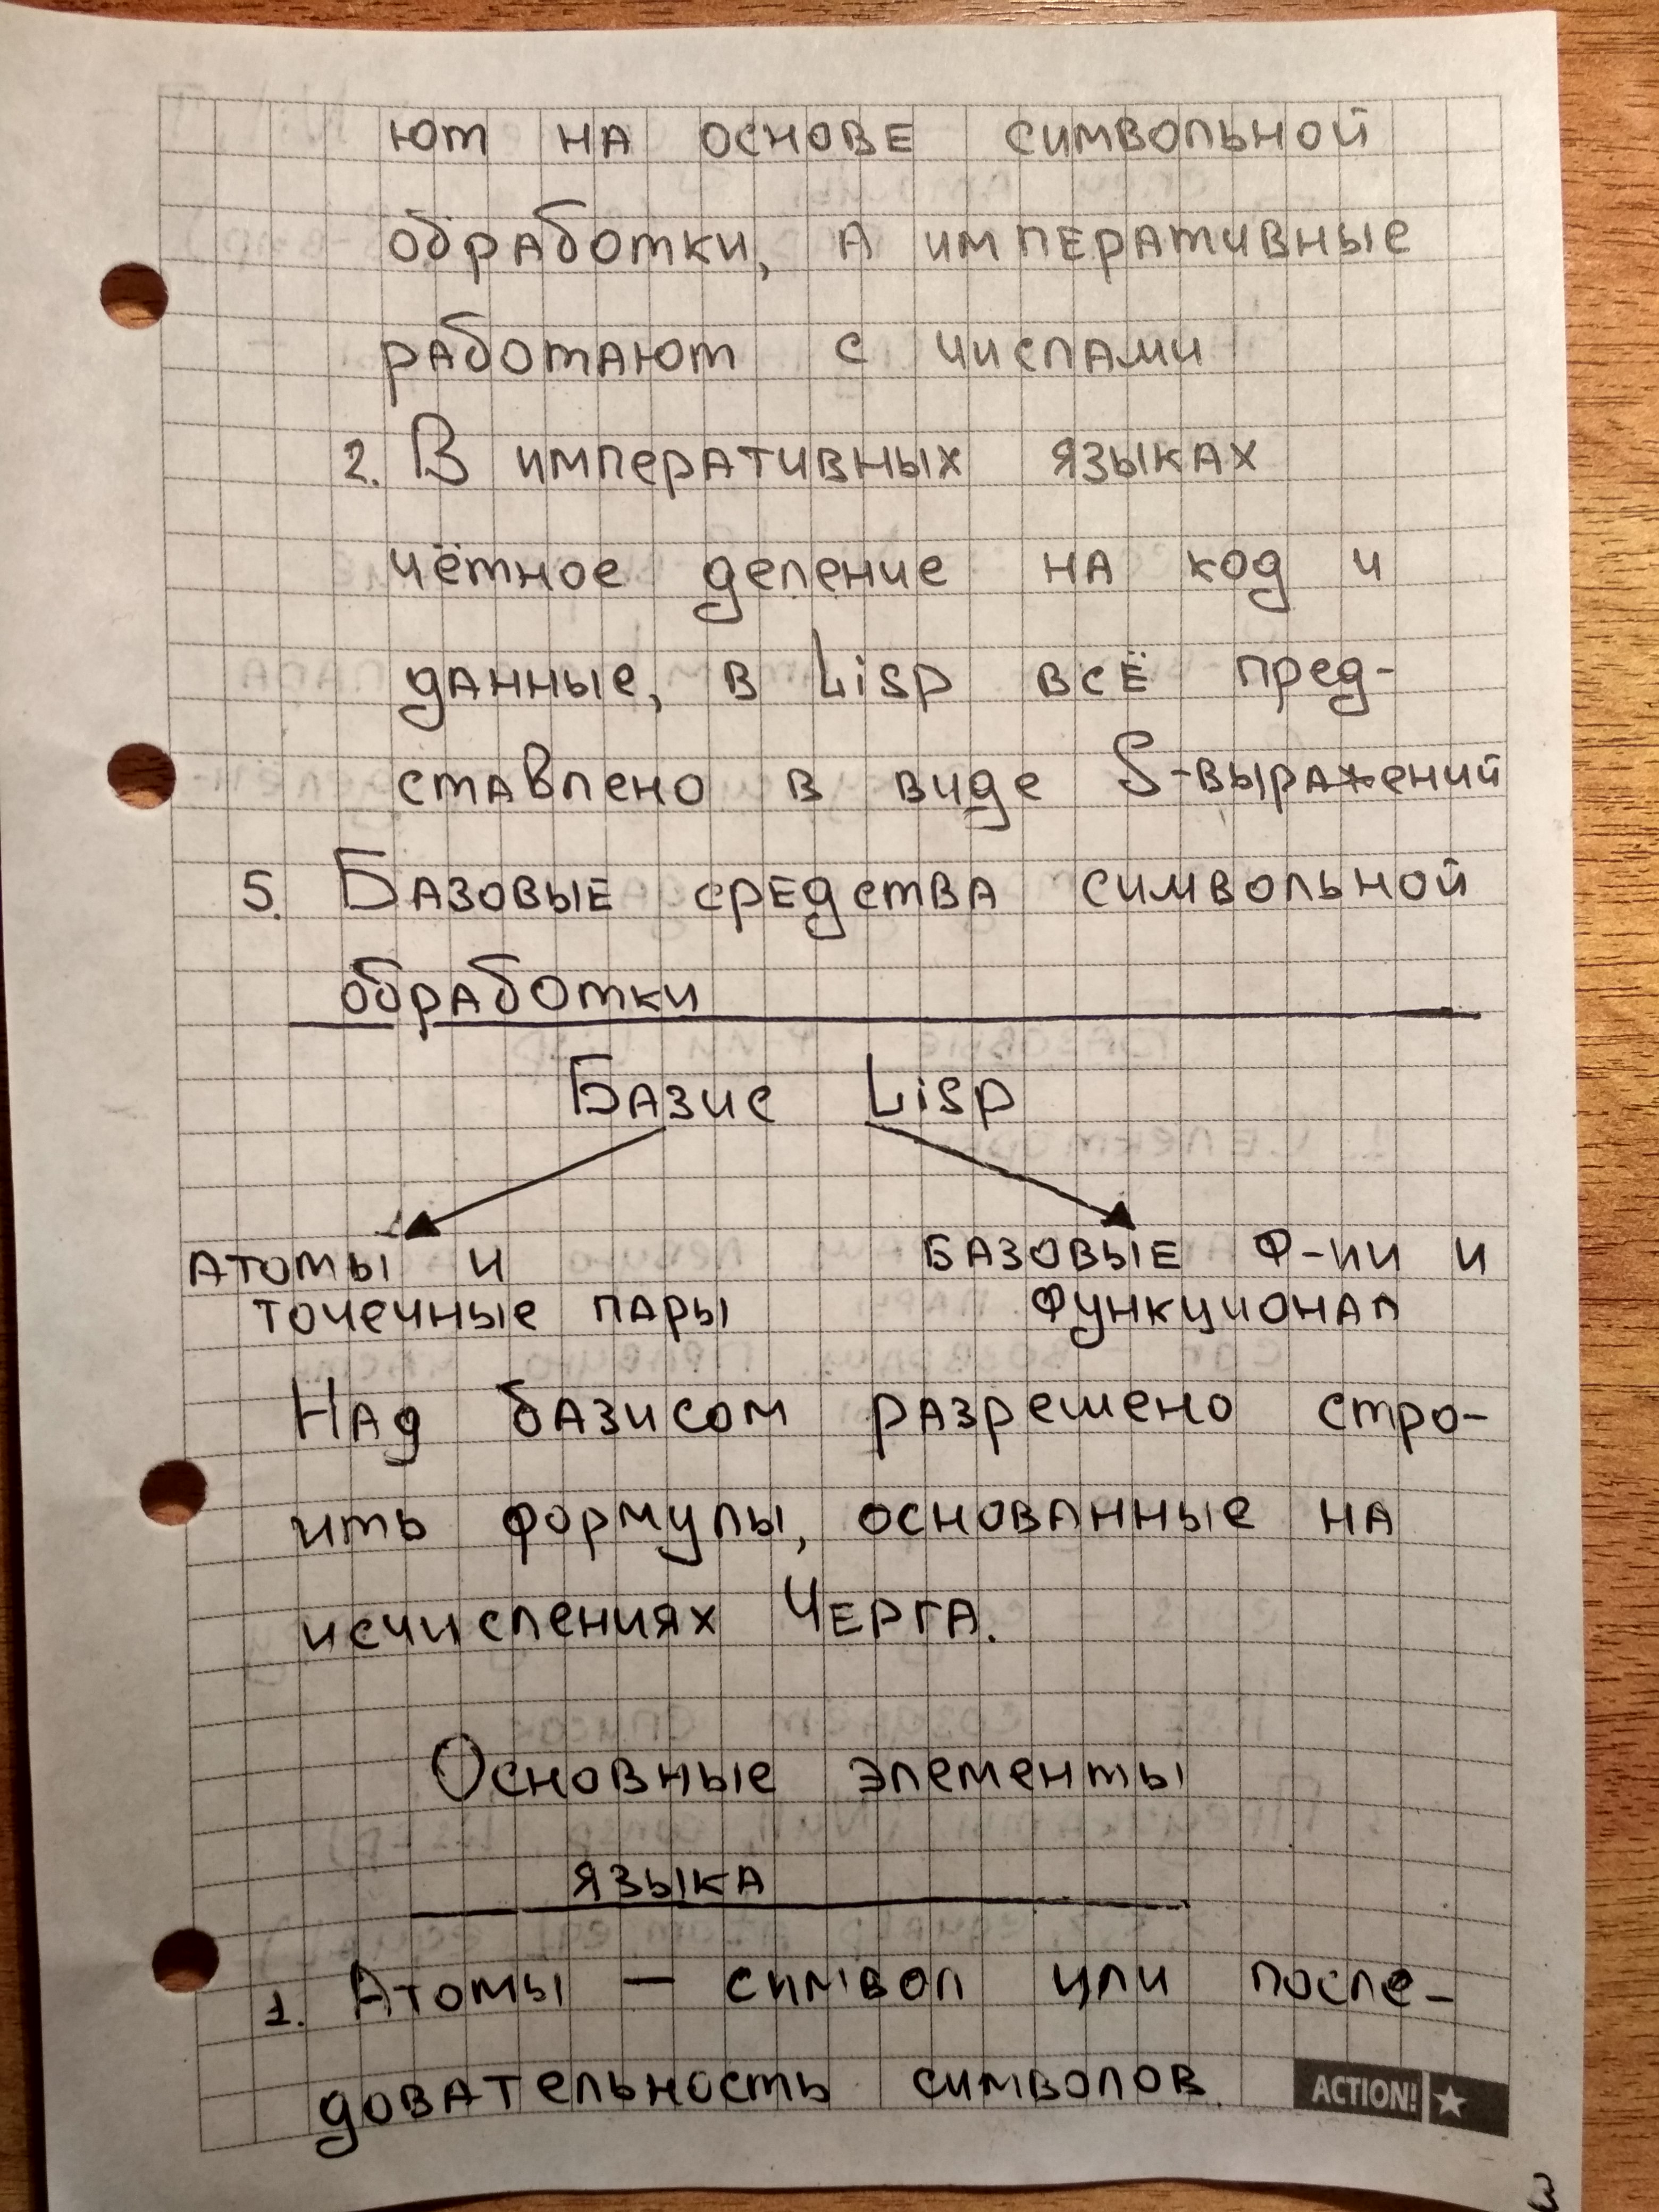 ют на основе символьной
обработки, а императивные
работают с числами
2. В императивных языках
чётное деление на код и
данные, в Lisp всё пред-
ставлено в виде S-выражений
5. Базовые средства символьной
обработки
Базис Lisp
Атомы и
точечные пары
Базовые ф-ии и
функционал
Над базисом разрешено стро-
ить формулы, основанные на
исчислениях Черга.
Основные элементы
языка
1. Атомы — символ или после-
довательность символов.
ACTION!
3